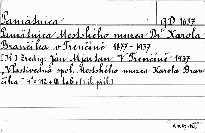 Pamätnica GD 1637
Pamätnica Mestského múzea Dr Karola
Brančíka v Trenčíne 1877-1937
Zredig. Ján Mjartan V Trenčíne 1937
Vlastivedná spol. Mestského múzea Karola Bran-
číka 4° 112